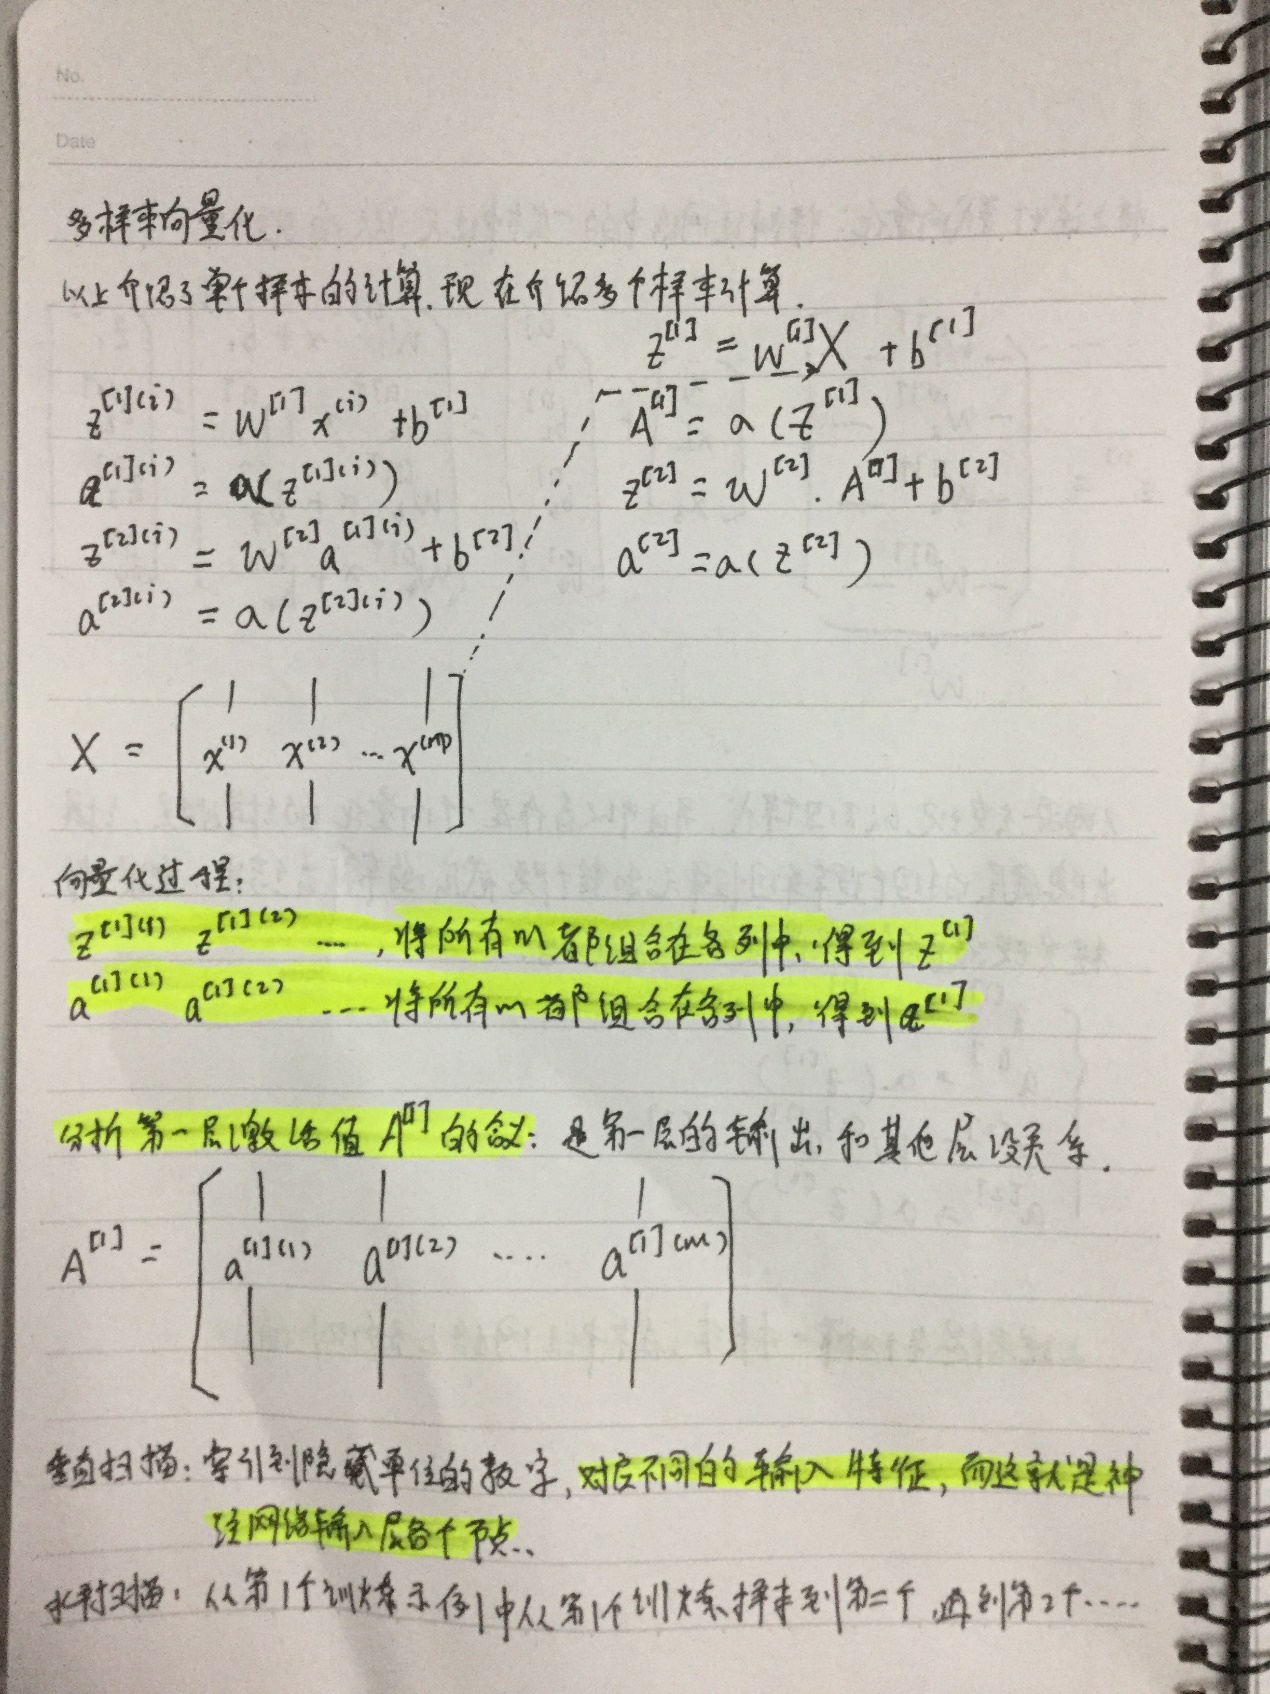 No.
Date
多样本向量化.
以上介绍了单个样本的计算.现在介绍多个样本计算.
z^[1](i) = W^[1] x^(i) + b^[1]
a^[1](i) = a(z^[1](i))
z^[2](i) = W^[2] a^[1](i) + b^[2]
a^[2](i) = a(z^[2](i))
z^[1] = W^[1] X + b^[1]
A^[1] = a(Z^[1])
z^[2] = W^[2] . A^[1] + b^[2]
a^[2] = a(z^[2])
X = [ x^(1) x^(2) ... x^(m) ]
向量化过程:
z^[1](1) z^[1](2) ...,将所有以都组合在各列中,得到 z^[1]
a^[1](1) a^[1](2) ... 将所有以都组合在各列中,得到 a^[1]
分析第一层激活值 A^[1] 的含义: 是第一层的输出,和其他层没关系.
A^[1] = [ a^[1](1) a^[1](2) .... a^[1](m) ]
垂直扫描: 索引到隐藏单位的数字,对应不同的输入特征,而这就是神
经网络输入层各个节点..
水平扫描: 从第1个训练示例中从第1个训练样本到第二个,再到第2个....